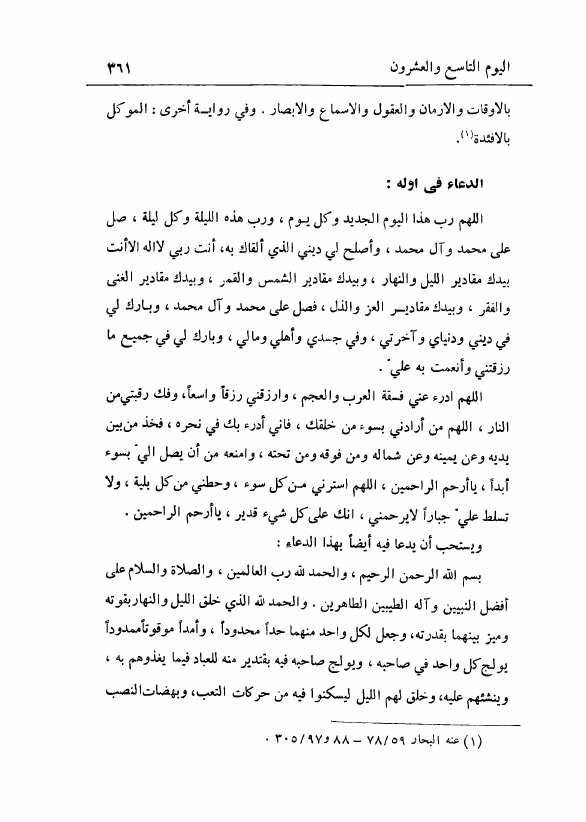 اليوم التاسع والعشرون ٣٦١
بالاوقات والازمان والعقول والاسماع والابصار . وفي روايـة أخرى : الموكل
بالافئدة(١).
الدعاء فى اوله :
اللهم رب هذا اليوم الجديد وكل يـوم ، ورب هذه الليلة وكل ليلة ، صل
على محمد وآل محمد ، وأصلح لي ديني الذي ألقاك به، أنت ربي لااله الاأنت
بيدك مقادير الليل والنهار ، وبيدك مقادير الشمس والقمر ، وبيدك مقادير الغنى
والفقر ، وبيدك مقاديـر العز والذل ، فصل على محمد وآل محمد، وبـارك لي
في ديني ودنياي وآخرتي ، وفي جسدي وأهلي ومالي ، وبارك لي في جميع ما
رزقتني وأنعمت به عليّ .
اللهم ادرء عني فسقة العرب والعجم ، وارزقني رزقاً واسعاً، وفك رقبتي من
النار ، اللهم من أرادني بسوء من خلقك ، فاني أدرء بك في نحره ، فخذ من بين
يديه وعن يمينه وعن شماله ومن فوقه ومن تحته ، وامنعه من أن يصل اليّ بسوء
أبداً ، ياأرحم الراحمين ، اللهم استرني مـن كل سوء ، وحطني من كل بلية ، ولا
تسلط عليّ جباراً لايرحمني ، انك على كل شيء قدير ، ياأرحم الراحمين .
ويستحب أن يدعا فيه أيضاً بهذا الدعاء :
بسم الله الرحمن الرحيم ، والحمد لله رب العالمين ، والصلاة والسلام على
أفضل النبيين وآله الطيبين الطاهرين . والحمد لله الذي خلق الليل والنهار بقوته
وميز بينهما بقدرته، وجعل لكل واحد منهما حداً محدوداً ، وأمداً موقوتاً ممدوداً
يولج كل واحد في صاحبه ، ويولج صاحبه فيه بقتدير منه للعباد فيما يغذوهم به ،
وينشئهم عليه، وخلق لهم الليل ليسكنوا فيه من حركات التعب، وبهضات النصب
(١) عنه البحار ٥٩/ ٧٨ – ٨٨ و٣٠٥/٩٧ .